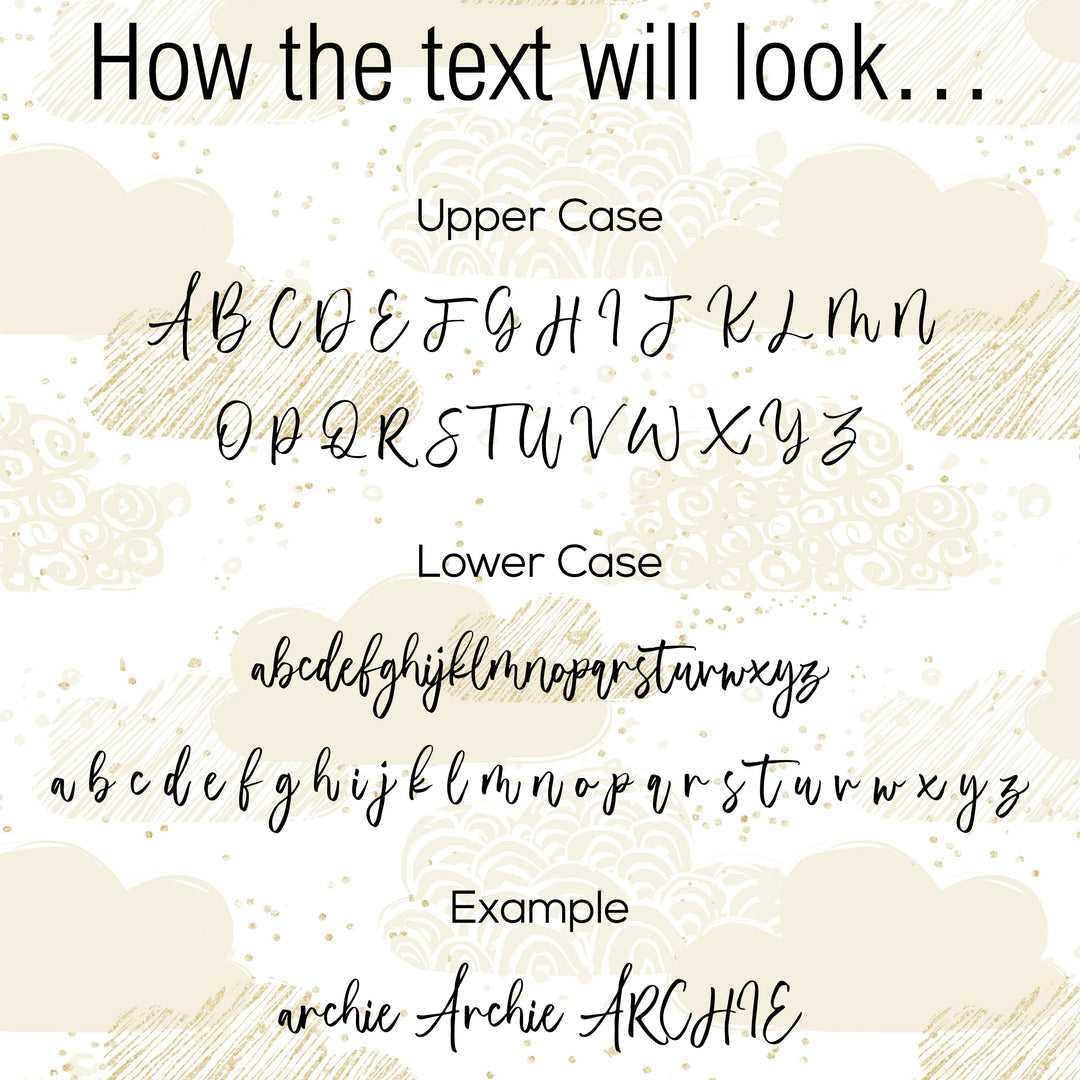 How the text will look...
Upper Case
A B C D E F G H I J K L M N
O P Q R S T U V W X Y Z
Lower Case
abcdefghijklmnopqrstuvwxyz
a b c d e f g h i j k l m n o p q r s t u v w x y z
Example
archie Archie ARCHIE